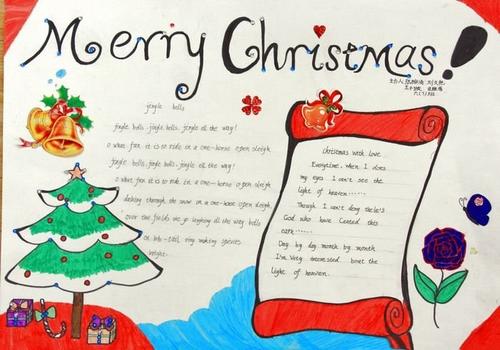 Merry Christmas!
jingle bells
jingle bells, jingle bells, jingle all the way!
O what fun it is to ride in a one-horse open sleigh
jingle bells, jingle bells, jingle all the way!
O what fun it is to ride in a one-horse open sleigh
dashing through the snow in a one-horse open sleigh,
over the fields we go laughing all the way bells
on bob-tail ring making spirits
bright.
Christmas with love
Everytime, when I does
my eyes I can't see the
light of heaven......
Though I isn't dong
God who have
Day by day month by month
I'm very
light of heaven.